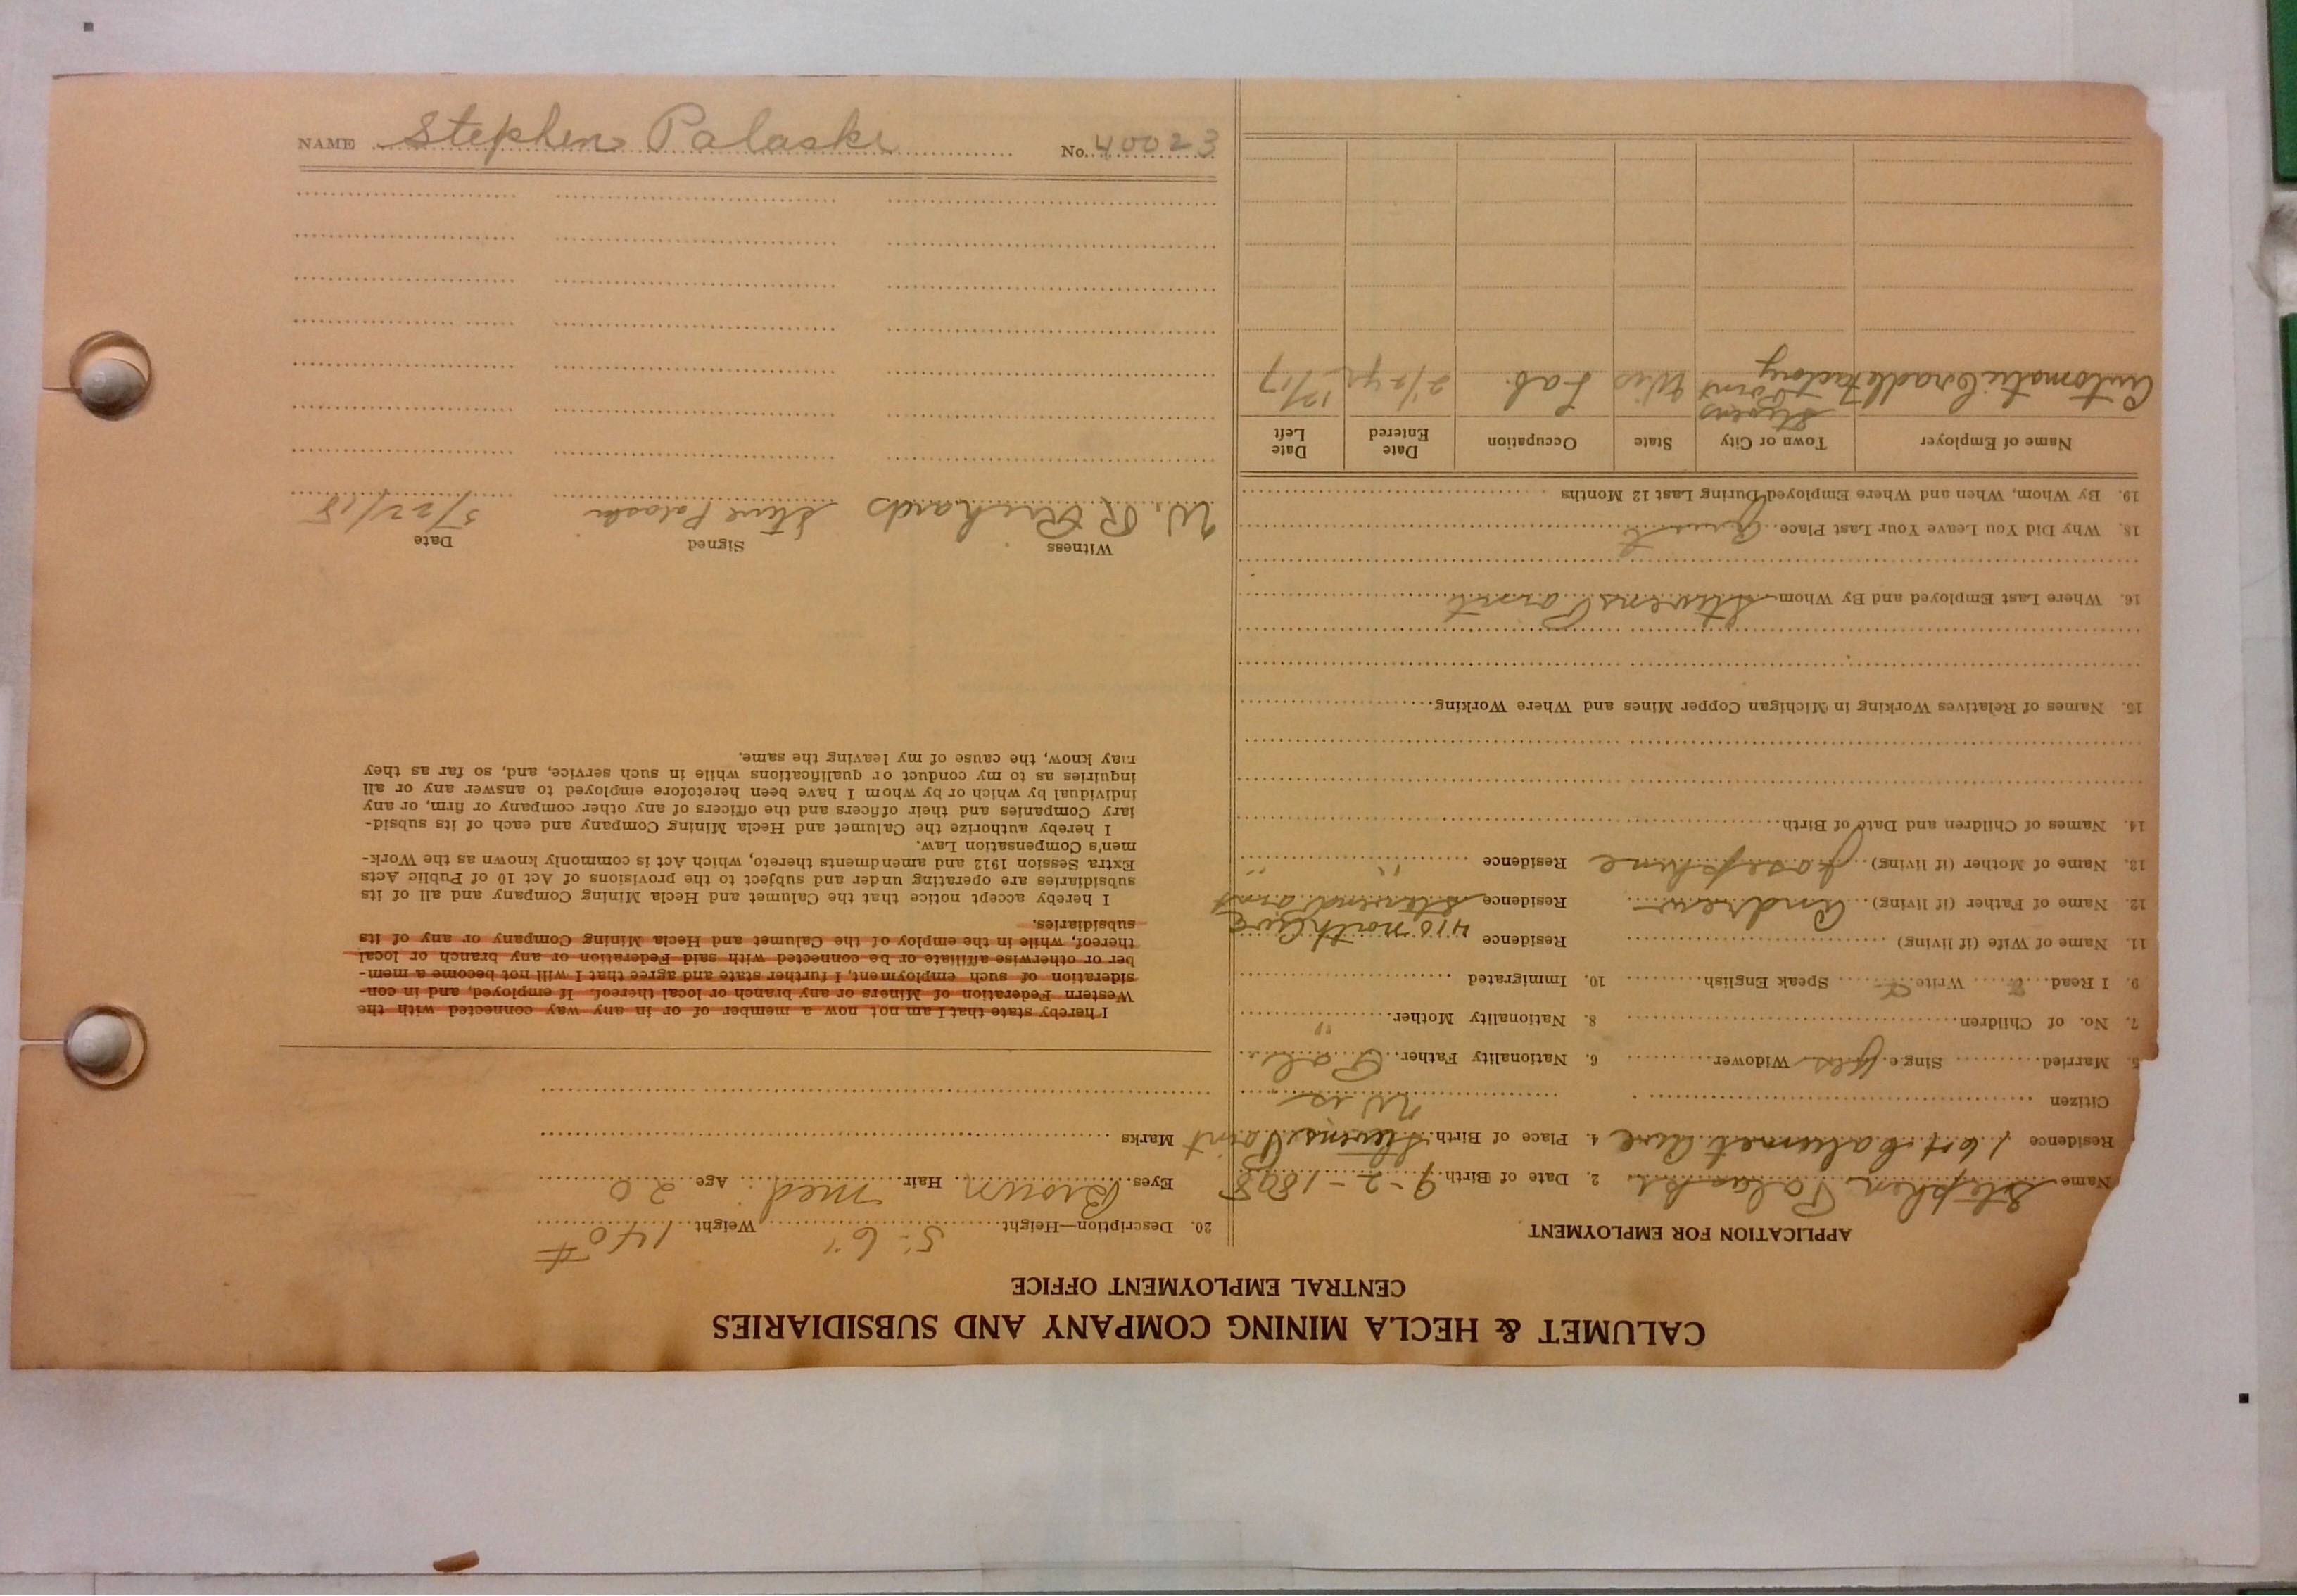 CALUMET & HECLA MINING COMPANY AND SUBSIDIARIES
CENTRAL EMPLOYMENT OFFICE
APPLICATION FOR EMPLOYMENT
Name Stephen Palaski 2. Date of Birth 9-2-1898
Residence 1607 Calumet Ave 4. Place of Birth Stevens Point
Citizen Wis
5. Married Single Yes Widower 6. Nationality Father Pole
7. No. of Children 8. Nationality Mother "
9. I Read Write Speak English 10. Immigrated
11. Name of Wife (if living) Residence 410 North Ave
12. Name of Father (if living) Andrew Residence Stevens Point
13. Name of Mother (if living) Josephine Residence " "
14. Names of Children and Date of Birth
15. Names of Relatives Working in Michigan Copper Mines and Where Working
16. Where Last Employed and By Whom Stevens Point
18. Why Did You Leave Your Last Place Quit
19. By Whom, When and Where Employed During Last 12 Months
Name of Employer Town or City State Occupation Date Entered Date Left
Automatic Cradle Factory Stevens Point Wis Lab. 2 1/2 yr 12/17
20. Description—Height 5-6" Weight 140#
Eyes Brown Hair med. Age 20
Marks
I hereby state that I am not now a member of or in any way connected with the
Western Federation of Miners or any branch or local thereof. If employed, and in con-
sideration of such employment, I further state and agree that I will not become a mem-
ber or otherwise affiliate or be connected with said Federation or any branch or local
thereof, while in the employ of the Calumet and Hecla Mining Company or any of its
subsidiaries.
I hereby accept notice that the Calumet and Hecla Mining Company and all of its
subsidiaries are operating under and subject to the provisions of Act 10 of Public Acts
Extra Session 1912 and amendments thereto, which Act is commonly known as the Work-
men's Compensation Law.
I hereby authorize the Calumet and Hecla Mining Company and each of its subsid-
iary Companies and their officers and the officers of any other company or firm, or any
individual by which or by whom I have been heretofore employed to answer any or all
inquiries as to my conduct or qualifications while in such service, and, so far as they
may know, the cause of my leaving the same.
Witness Signed Date
W. R. Richards Steve Palaski 5/22/18
NAME Stephen Palaski No. 40023